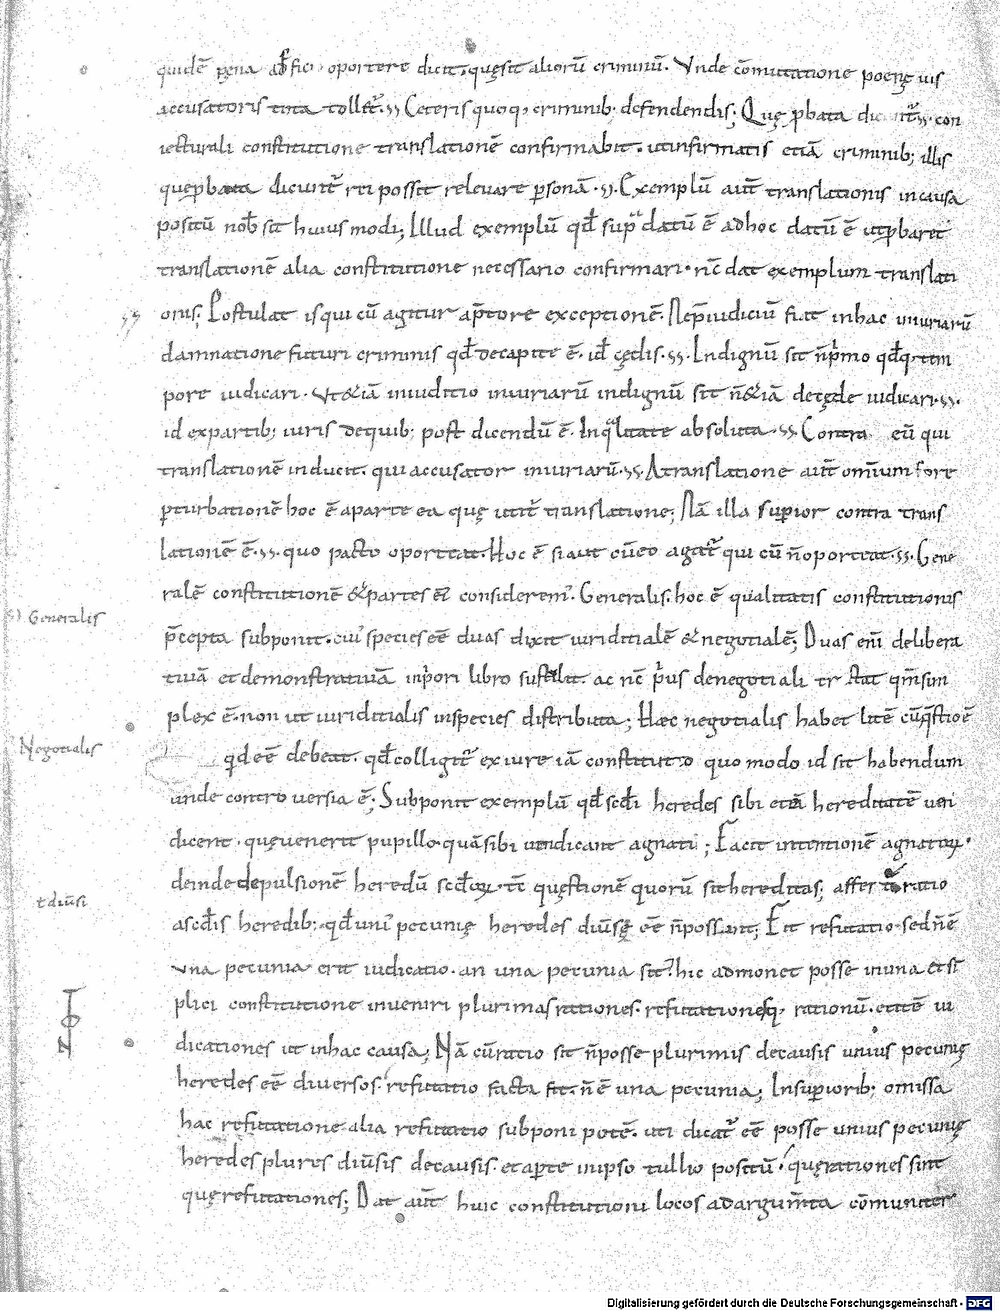 quidē pęna affici oportere dicit. quęsit aliorū criminū. Unde cōmutatione poenę uis
accusatoris tota tollet̄. Ceteris quoq; criminib; defendendis; Quę ꝓbata dicunt̄ con
iecturali constitutione translationē confirmabit. ut infirmatis etiā criminib; illis
quę ꝓbata dicunt̄ rei possit releuare ꝑsonā. Exemplū aut̄ translationis in causa
positū nob̄ sit huius modi; Illud exemplū qd̄ supra datū ē ad hoc datū ē ut ꝓbaret
translationē alia constitutione necessario confirmari. nc̄ dat exemplum translati
onis; Postulat is qui cū agitur a p̄tore exceptionē. Ne p̄iudiciū fiat in hac iniuriarū
damnatione futuri criminis qd̄ de capite ē. id̄ cędis. Indignū sit n̄ primo qd̄q; tem
pore iudicari. Ut & iā in iuditio iniuriarū indignū sit n̄ & iā de cęde iudicari.
id ex partib; iuris de quib; post dicendū ē. In qualitate absoluta. Contra eū qui
translationē inducit. qui accusator iniuriarū. A translatione aut̄ omnium fore
ꝑturbationē hoc ē a parte ea quę utit̄ translatione; Nā illa superior contra trans
lationē ē. quo pacto oporteat. Hoc ē si aut cū eo agat̄ qui cū n̄ oporteat. Gene
ralē constitutionē & partes ei considerem'. Generalis. hoc ē qualitatis constitutionis
p̄cepta subponit. cui' species eē duas dixit iuriditialē & negotialē; Duas eni delibera
tiuā et demonstratiuā in priori libro sustulit. ac nc̄ prius de negotiali tractat qm̄ sim
plex ē. non ut iuriditialis in species distributa; Hæc negotialis habet litē cū quęstio ē
qd eē debeat. qd̄ colligit̄ ex iure iā constituto quo modo id sit habendum
unde controuersia ē; Subponit exemplū qd̄ scd̄i heredes sibi etiā hereditatē uen
dicent. quę uenerit pupillo. quā sibi uendicant agnati; Facit intentionē agnatoꝝ.
deinde depulsionē heredū scd̄oꝝ. tc̄ quęstionē quorū sit hereditas; affert̄ ratio
a scd̄is heredib; qd̄ uni' pecunię heredes diuersę eē n̄ possunt; Fit refutatio. sed n̄ ē
una pecunia erit iudicatio. an una pecunia sit? hic admonet posse in una et sī
plici constitutione inueniri plurimas rationes. refutationesq; rationū. et itē iu
dicationes ut in hac causa; Nā cū ratio sit n̄ posse plurimis de causis unius pecunię
heredes eē diuersos. refutatio facta sit. n̄ ē una pecunia; In superiorib; omissa
hac refutatione. alia refutatio subponi potē. uti dicat̄ eē posse unius pecunię
heredes plures diūsis de causis. et aperte in ipso tullio positū. quę rationes sint
quę refutationes; Dat aut̄ huic constitutioni locos ad argum̄ta cōmuniter
Generalis
Negotialis
ł diūsi
Digitalisierung gefördert durch die Deutsche Forschungsgemeinschaft - DFG